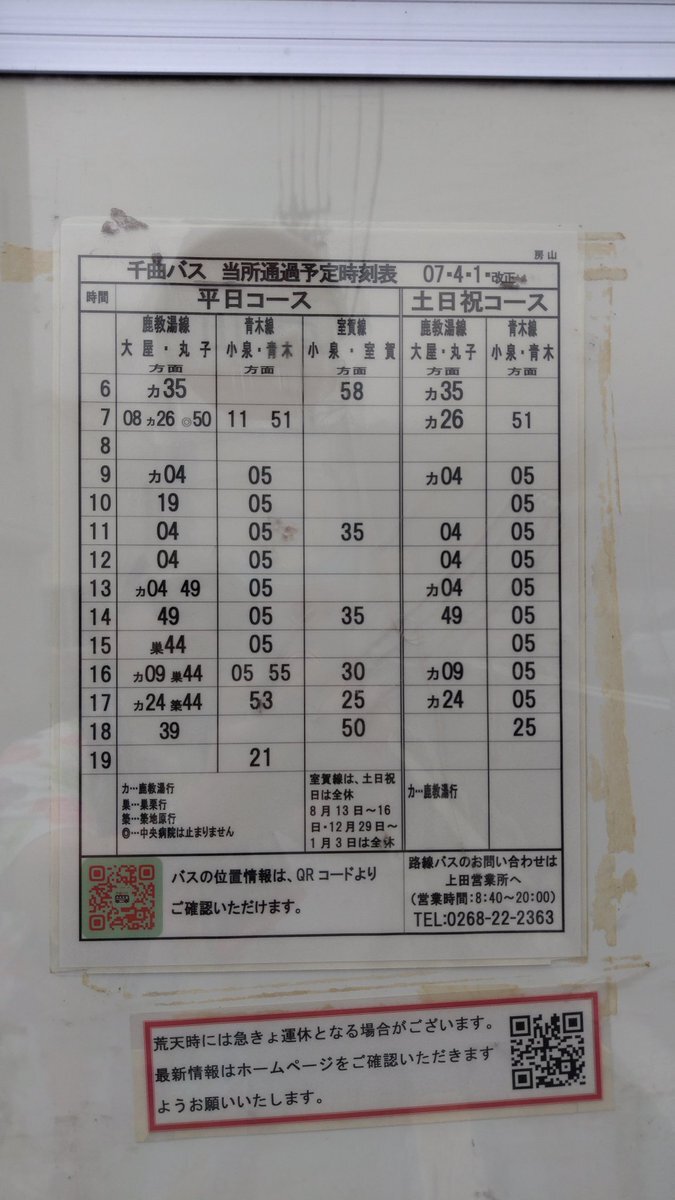 房山
千曲バス 当所通過予定時刻表 07・4・1・改正
時間 平日コース 土日祝コース
鹿教湯線 青木線 室賀線 鹿教湯線 青木線
大屋・丸子 小泉・青木 小泉・室賀 大屋・丸子 小泉・青木
方面 方面 方面 方面 方面
6 カ35 58 カ35
7 08 カ26 ◎50 11 51 カ26 51
8
9 カ04 05 カ04 05
10 19 05 05
11 04 05 35 04 05
12 04 05 04 05
13 カ04 49 05 カ04 05
14 49 05 35 49 05
15 巣44 05 05
16 カ09 巣44 05 55 30 カ09 05
17 カ24 築44 53 25 カ24 05
18 39 50 25
19 21
カ…鹿教湯行
巣…巣栗行
築…築地原行
◎…中央病院は止まりません
室賀線は、土日祝
日は全休
8月13日～16
日・12月29日～
1月3日は全休
カ…鹿教湯行
バスの位置情報は、QRコードより
ご確認いただけます。
路線バスのお問い合わせは
上田営業所へ
(営業時間:8:40～20:00)
TEL:0268-22-2363
荒天時には急きょ運休となる場合がございます。
最新情報はホームページをご確認いただきます
ようお願いいたします。